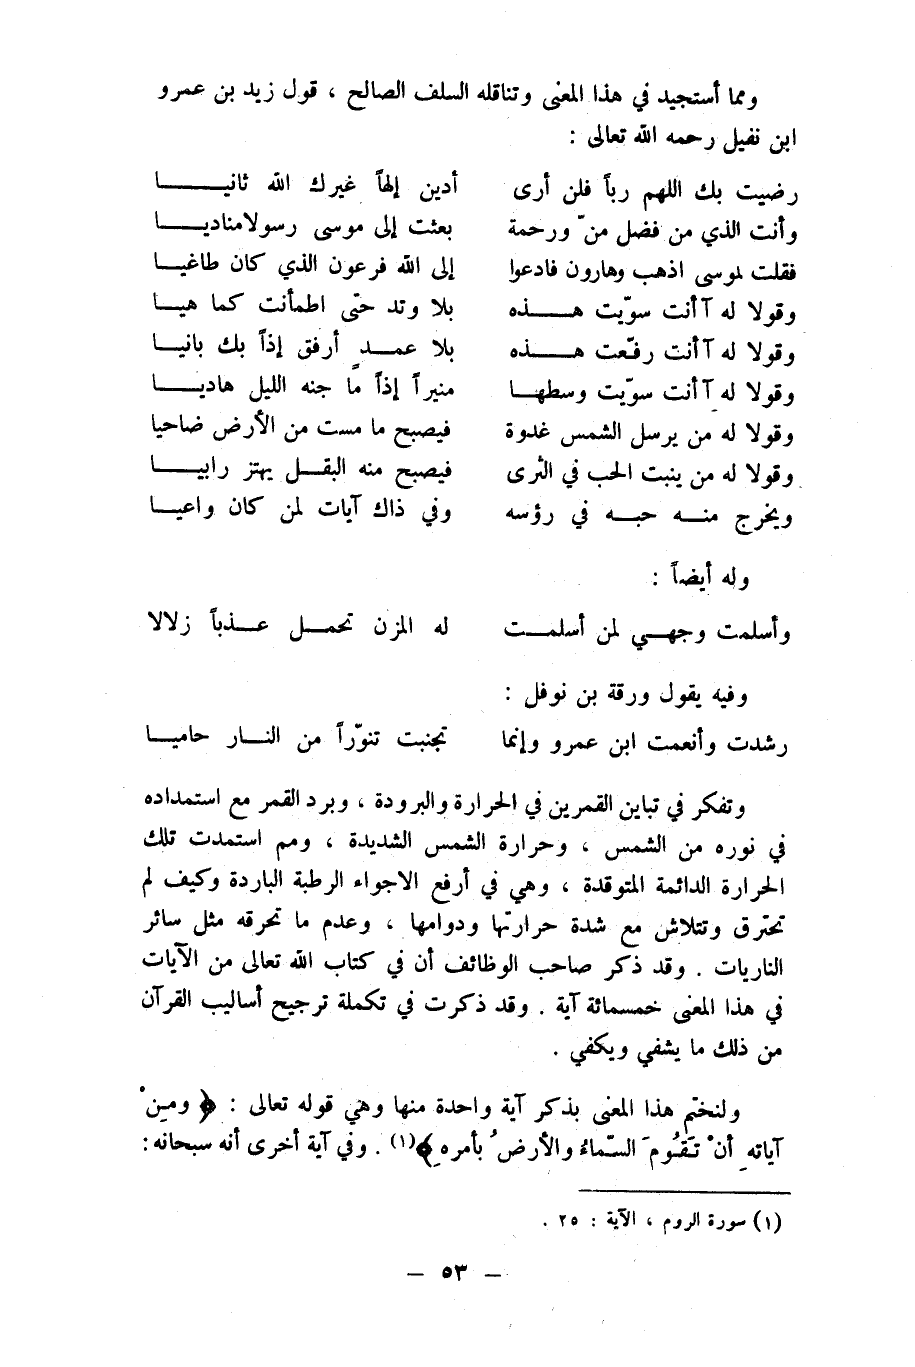 ومما أستجيد في هذا المعنى وتناقله السلف الصالح ، قول زيد بن عمرو
ابن نفيل رحمه الله تعالى :
رضيت بك اللهم رباً فلن أرى أدين إلهاً غيرك الله ثانيـــا
وأنت الذي من فضل منّ ورحمة بعثت إلى موسى رسولا مناديـــا
فقلت لموسى اذهب وهارون فادعوا إلى الله فرعون الذي كان طاغيـا
وقولا له آأنت سوّيت هـــذه بلا وتد حتّى اطمأنت كما هيـا
وقولا له آأنت رفّعت هـــذه بلا عمــد أرفق إذاً بك بانيـا
وقولا له آأنت سوّيت وسطهـا منيراً إذاً ما جنه الليل هاديـــا
وقولا له من يرسل الشمس غدوة فيصبح ما مست من الأرض ضاحيا
وقولا له من ينبت الحب في الثرى فيصبح منه البقــل يهتز رابيـــا
ويخرج منــه حبــه في رؤسه وفي ذاك آيات لمن كان واعيـا
وله أيضاً :
وأسلمت وجهــي لمن أسلمــت له المزن تحمــل عــذباً زلالا
وفيه يقول ورقة بن نوفل :
رشدت وأنعمت ابن عمرو وإنما تجنبت تنوّراً من النــار حاميـا
وتفكر في تباين القمرين في الحرارة والبرودة ، وبرد القمر مع استمداده
في نوره من الشمس ، وحرارة الشمس الشديدة ، ومم استمدت تلك
الحرارة الدائمة المتوقدة ، وهي في أرفع الاجواء الرطبة الباردة وكيف لم
تحترق وتتلاش مع شدة حرارتها ودوامها ، وعدم ما تحرقه مثل سائر
الناريات . وقد ذكر صاحب الوظائف أن في كتاب الله تعالى من الآيات
في هذا المعنى خمسمائة آية . وقد ذكرت في تكملة ترجيح أساليب القرآن
من ذلك ما يشفي ويكفي .
ولنختم هذا المعنى بذكر آية واحدة منها وهي قوله تعالى : ﴿ ومِنْ
آياتهِ أنْ تَقُومَ السّماءُ والأرضُ بأمرهِ ﴾(١) . وفي آية أخرى أنه سبحانه :
(١) سورة الروم ، الآية : ٢٥ .
– ٥٣ –